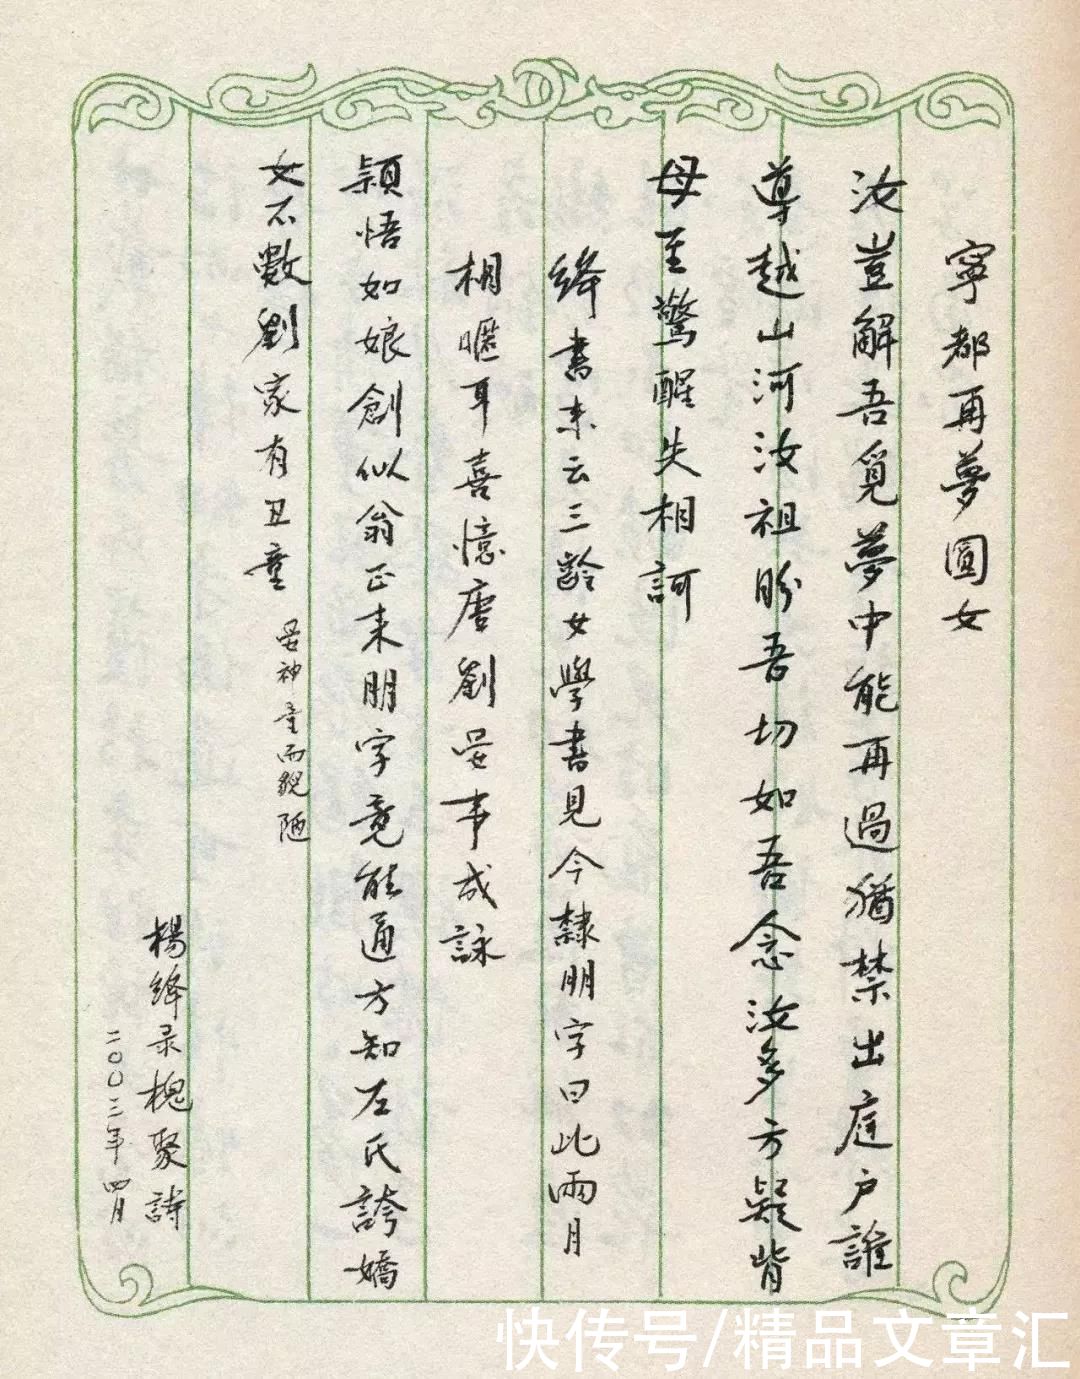 寧都再夢圓女
汝豈解吾覓夢中能再過猶禁出庭戶誰
導越山河汝祖盼吾切如吾念汝多方疑背
母至驚醒失相訶
絳書来云三齡女學書見今隸朋字曰此兩月
相暱耳喜憶唐劉晏事成詠
穎悟如娘創似翁正来朋字竟能通方知左氏誇嬌
女不數劉家有丑童
晏神童而貌陋
楊絳录槐聚詩
二〇〇三年四月
快传号/精品文章汇